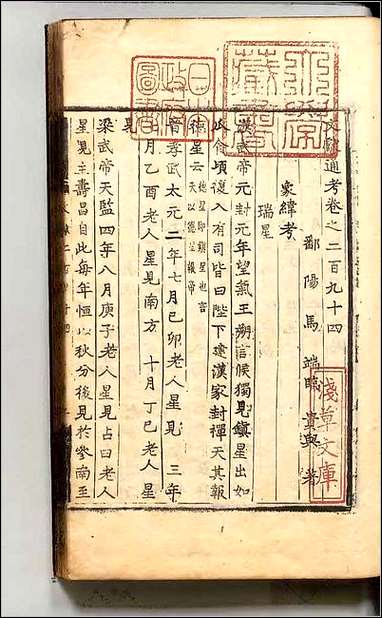 文獻通考卷之二百九十四
鄱陽馬端臨貴與考
象緯考
瑞星
漢武帝元封元年望氣王朔言候獨見鎮星出如
瓜食頃復入有司皆曰陛下建漢家封禪天其報
德星云 德星即鎮星也言天以德星報帝
晉孝武太元二年七月己卯老人星見 三年
月乙酉老人星見南方 十月丁巳老人星
見
梁武帝天監四年八月庚子老人星見占曰老人
星見主壽昌自此每年恒以秋分後見於參南至
淺草文庫
日本政府圖書